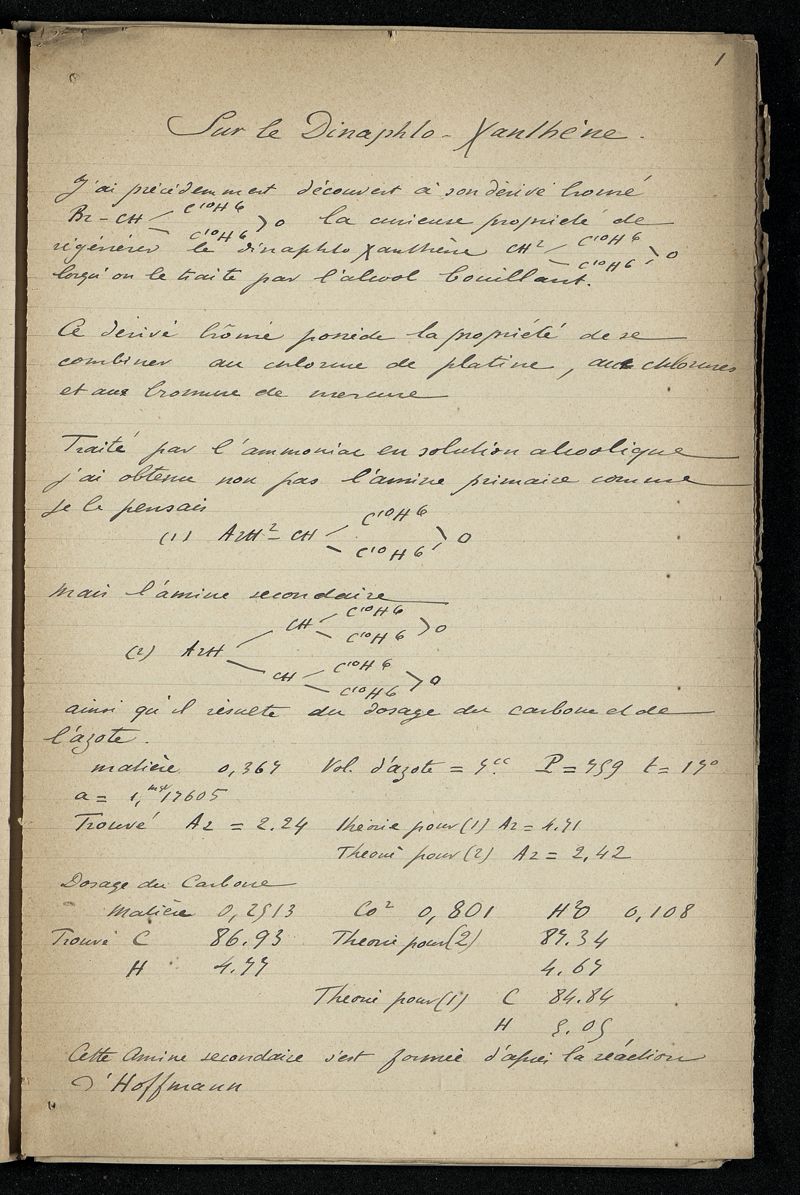 1
Sur le Dinaphto-Xanthène.
J'ai précédemment découvert à son dérivé bromé
Br - CH < C10H6 C10H6 > O la curieuse propriété de
régénérer le dinaphto Xanthène CH2 < C10H6 C10H6 > O
lorsqu'on le traite par l'alcool bouillant.
Ce dérivé brômé possède la propriété de se
combiner au chlorure de platine, aux chlorures
et aux bromure de mercure
Traité par l'ammoniac en solution alcoolique
j'ai obtenu non pas l'amine primaire comme
je le pensais
(1) AzH2 - CH < C10H6 C10H6 > O
mais l'amine secondaire
(2) AzH < CH < C10H6 C10H6 > O
CH < C10H6 C10H6 > O
ainsi qu'il résulte du dosage du carbone et de
l'azote.
matière 0,367 Vol. d'azote = 7cc. P = 759 t = 17°
a = 1,mgr17605
Trouvé Az = 2.24 théorie pour (1) Az = 4.71
Théorie pour (2) Az = 2,42
Dosage du Carbone
Matière 0,2513 Co2 0,801 H2O 0,108
Trouvé C 86.93 Théorie pour (2) 87.34
H 4.77 4.67
Théorie pour (1) C 84.84
H 5.05
Cette Amine secondaire s'est formée d'après la réaction
d'Hoffmann